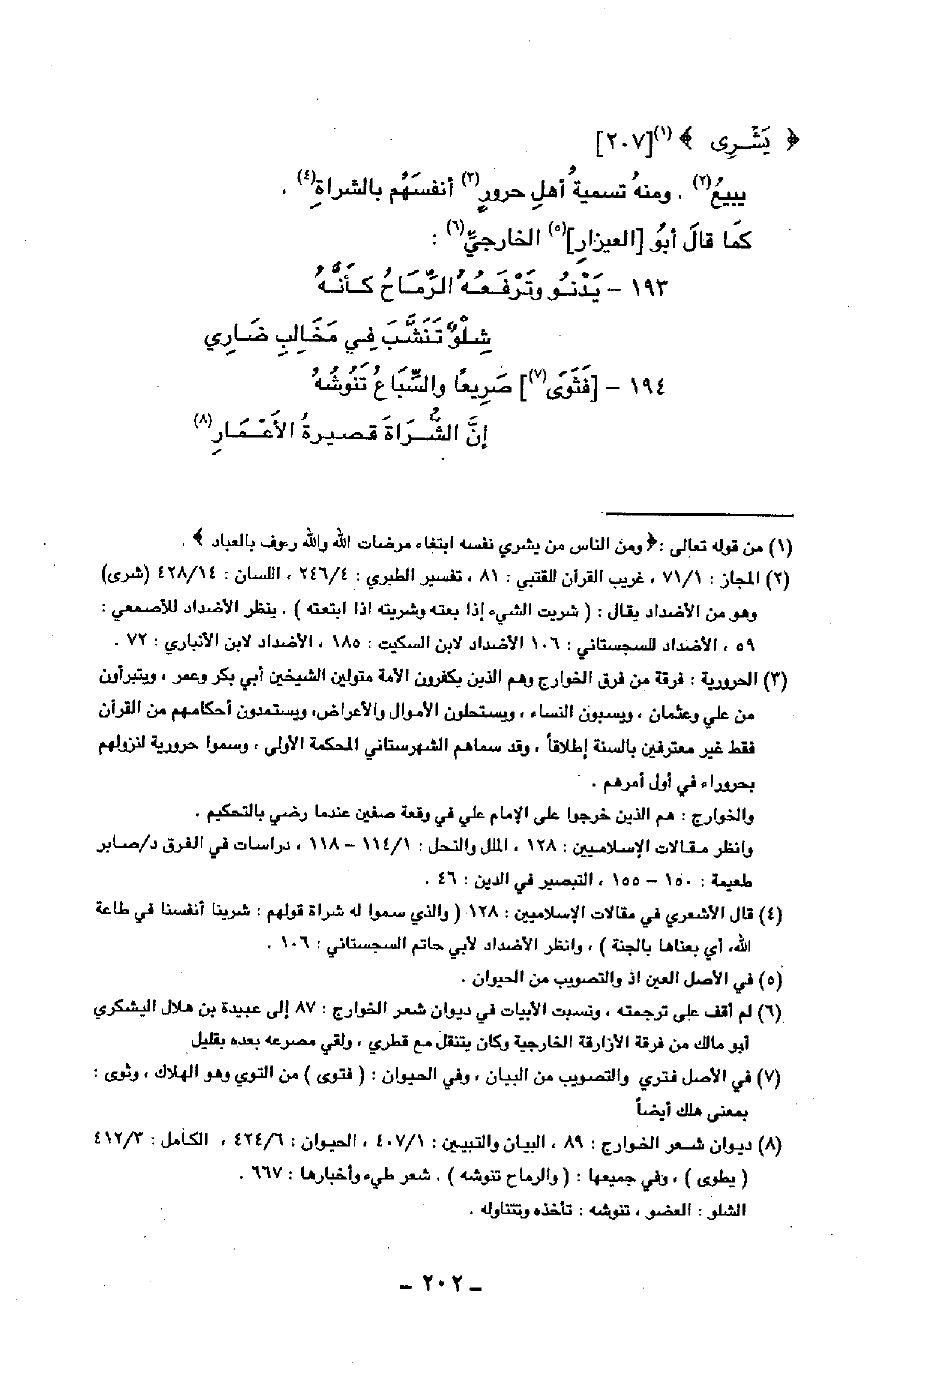 ﴿ يَشْرِى ﴾(١)[٢٠٧]
يبيعُ(٢) . ومنهُ تسميةُ أهلِ حرورٍ(٣) أنفسَهُم بالشراةِ(٤) .
كمَا قالَ أبُو [العيزارِ](٥) الخارجيِّ(٦) :
١٩٣ - يَدْنُو وتَرْفَعُهُ الرِّمَاحُ كَأَنَّهُ
شِلْوٌ تَنَشَّبَ فِي مَخَالِبِ ضَارِي
١٩٤ - [فَثَوَى(٧)] صَرِيعًا والسِّبَاعُ تَنُوشُهُ
إنَّ الشُّرَاةَ قصيرةُ الأَعْمَارِ(٨)
(١) من قوله تعالى :﴿ ومن الناس من يشري نفسه ابتغاء مرضات الله والله رءوف بالعباد ﴾ .
(٢) المجاز : ٧١/١ ، غريب القرآن للقتبي : ٨١ ، تفسير الطبري : ٢٤٦/٤ ، اللسان : ٤٢٨/١٤ (شرى)
وهو من الأضداد يقال : ( شريت الشيء إذا بعته وشريته اذا ابتعته ) . ينظر الأضداد للأصمعي :
٥٩ ، الأضداد للسجستاني : ١٠٦ الأضداد لابن السكيت : ١٨٥ ، الأضداد لابن الأنباري : ٧٢ .
(٣) الحرورية : فرقة من فرق الخوارج وهم الذين يكفرون الأمة متولين الشيخين أبي بكر وعمر ، ويتبرأون
من علي وعثمان ، ويسبون النساء ، ويستحلون الأموال والأعراض، ويستمدون أحكامهم من القرآن
فقط غير معترفين بالسنة إطلاقاً ، وقد سماهم الشهرستاني المحكمة الأولى ، وسموا حرورية لنزولهم
بحروراء في أول أمرهم .
والخوارج : هم الذين خرجوا على الإمام علي في وقعة صفين عندما رضي بالتحكيم .
وانظر مقالات الإسلاميين : ١٢٨ ، الملل والنحل : ١١٤/١ - ١١٨ ، دراسات في الفرق د/صابر
طعيمة : ١٥٠ - ١٥٥ ، التبصير في الدين : ٤٦ .
(٤) قال الأشعري في مقالات الإسلاميين : ١٢٨ ( والذي سموا له شراة قولهم : شرينا أنفسنا في طاعة
الله، أي بعناها بالجنة ) ، وانظر الأضداد لأبي حاتم السجستاني : ١٠٦ .
(٥) في الأصل العين اذ والتصويب من الحيوان .
(٦) لم أقف على ترجمته ، ونسبت الأبيات في ديوان شعر الخوارج : ٨٧ إلى عبيدة بن هلال اليشكري
أبو مالك من فرقة الأزارقة الخارجية وكان يتنقل مع قطري ، ولقي مصرعه بعده بقليل
(٧) في الأصل فتري والتصويب من البيان ، وفي الحيوان : ( فتوى ) من التوي وهو الهلاك ، وثوى :
بمعنى هلك أيضاً
(٨) ديوان شعر الخوارج : ٨٩ ، البيان والتبيين : ٤٠٧/١ ، الحيوان : ٤٢٤/٦ ، الكامل : ٤١٢/٣
( يطوى ) ، وفي جميعها : ( والرماح تنوشه ) . شعر طيء وأخبارها : ٦٦٧ .
الشلو : العضو ، تنوشه : تأخذه وتتناوله .
- ٢٠٢ -